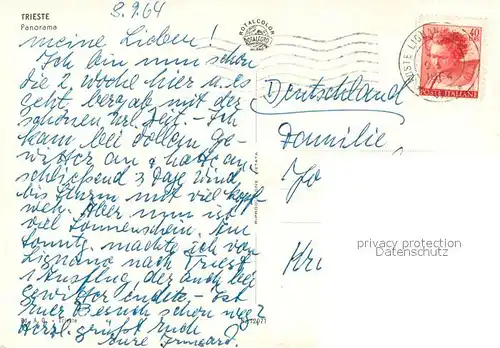 TRIESTE
Panorama
3.9.64
meine Lieben!
Ich bin nun schon
die 2. Woche hier u. es
geht bergab mit der
schönen Url. Zeit. - Ich
kam bei dollem Ge-
witter an & hatte an-
schließend 3 Tage Wind
bis Sturm mit viel Kopf-
weh. Aber nun ist
viel Sonnenschein. Am
Sonntg. machte ich von
Lignano nach Triest
1 Ausflug, der auch bei
Gewitter endete. - Ist
Euer Besuch schon weg?
Herzl. grüßt Euch
Eure Irmgard
ROTALCOLOR
ROTALFOTO
MILANO
40
POSTE ITALIANE
Deutschland
Familie
Jo
Hri
privacy protection
Datenschutz